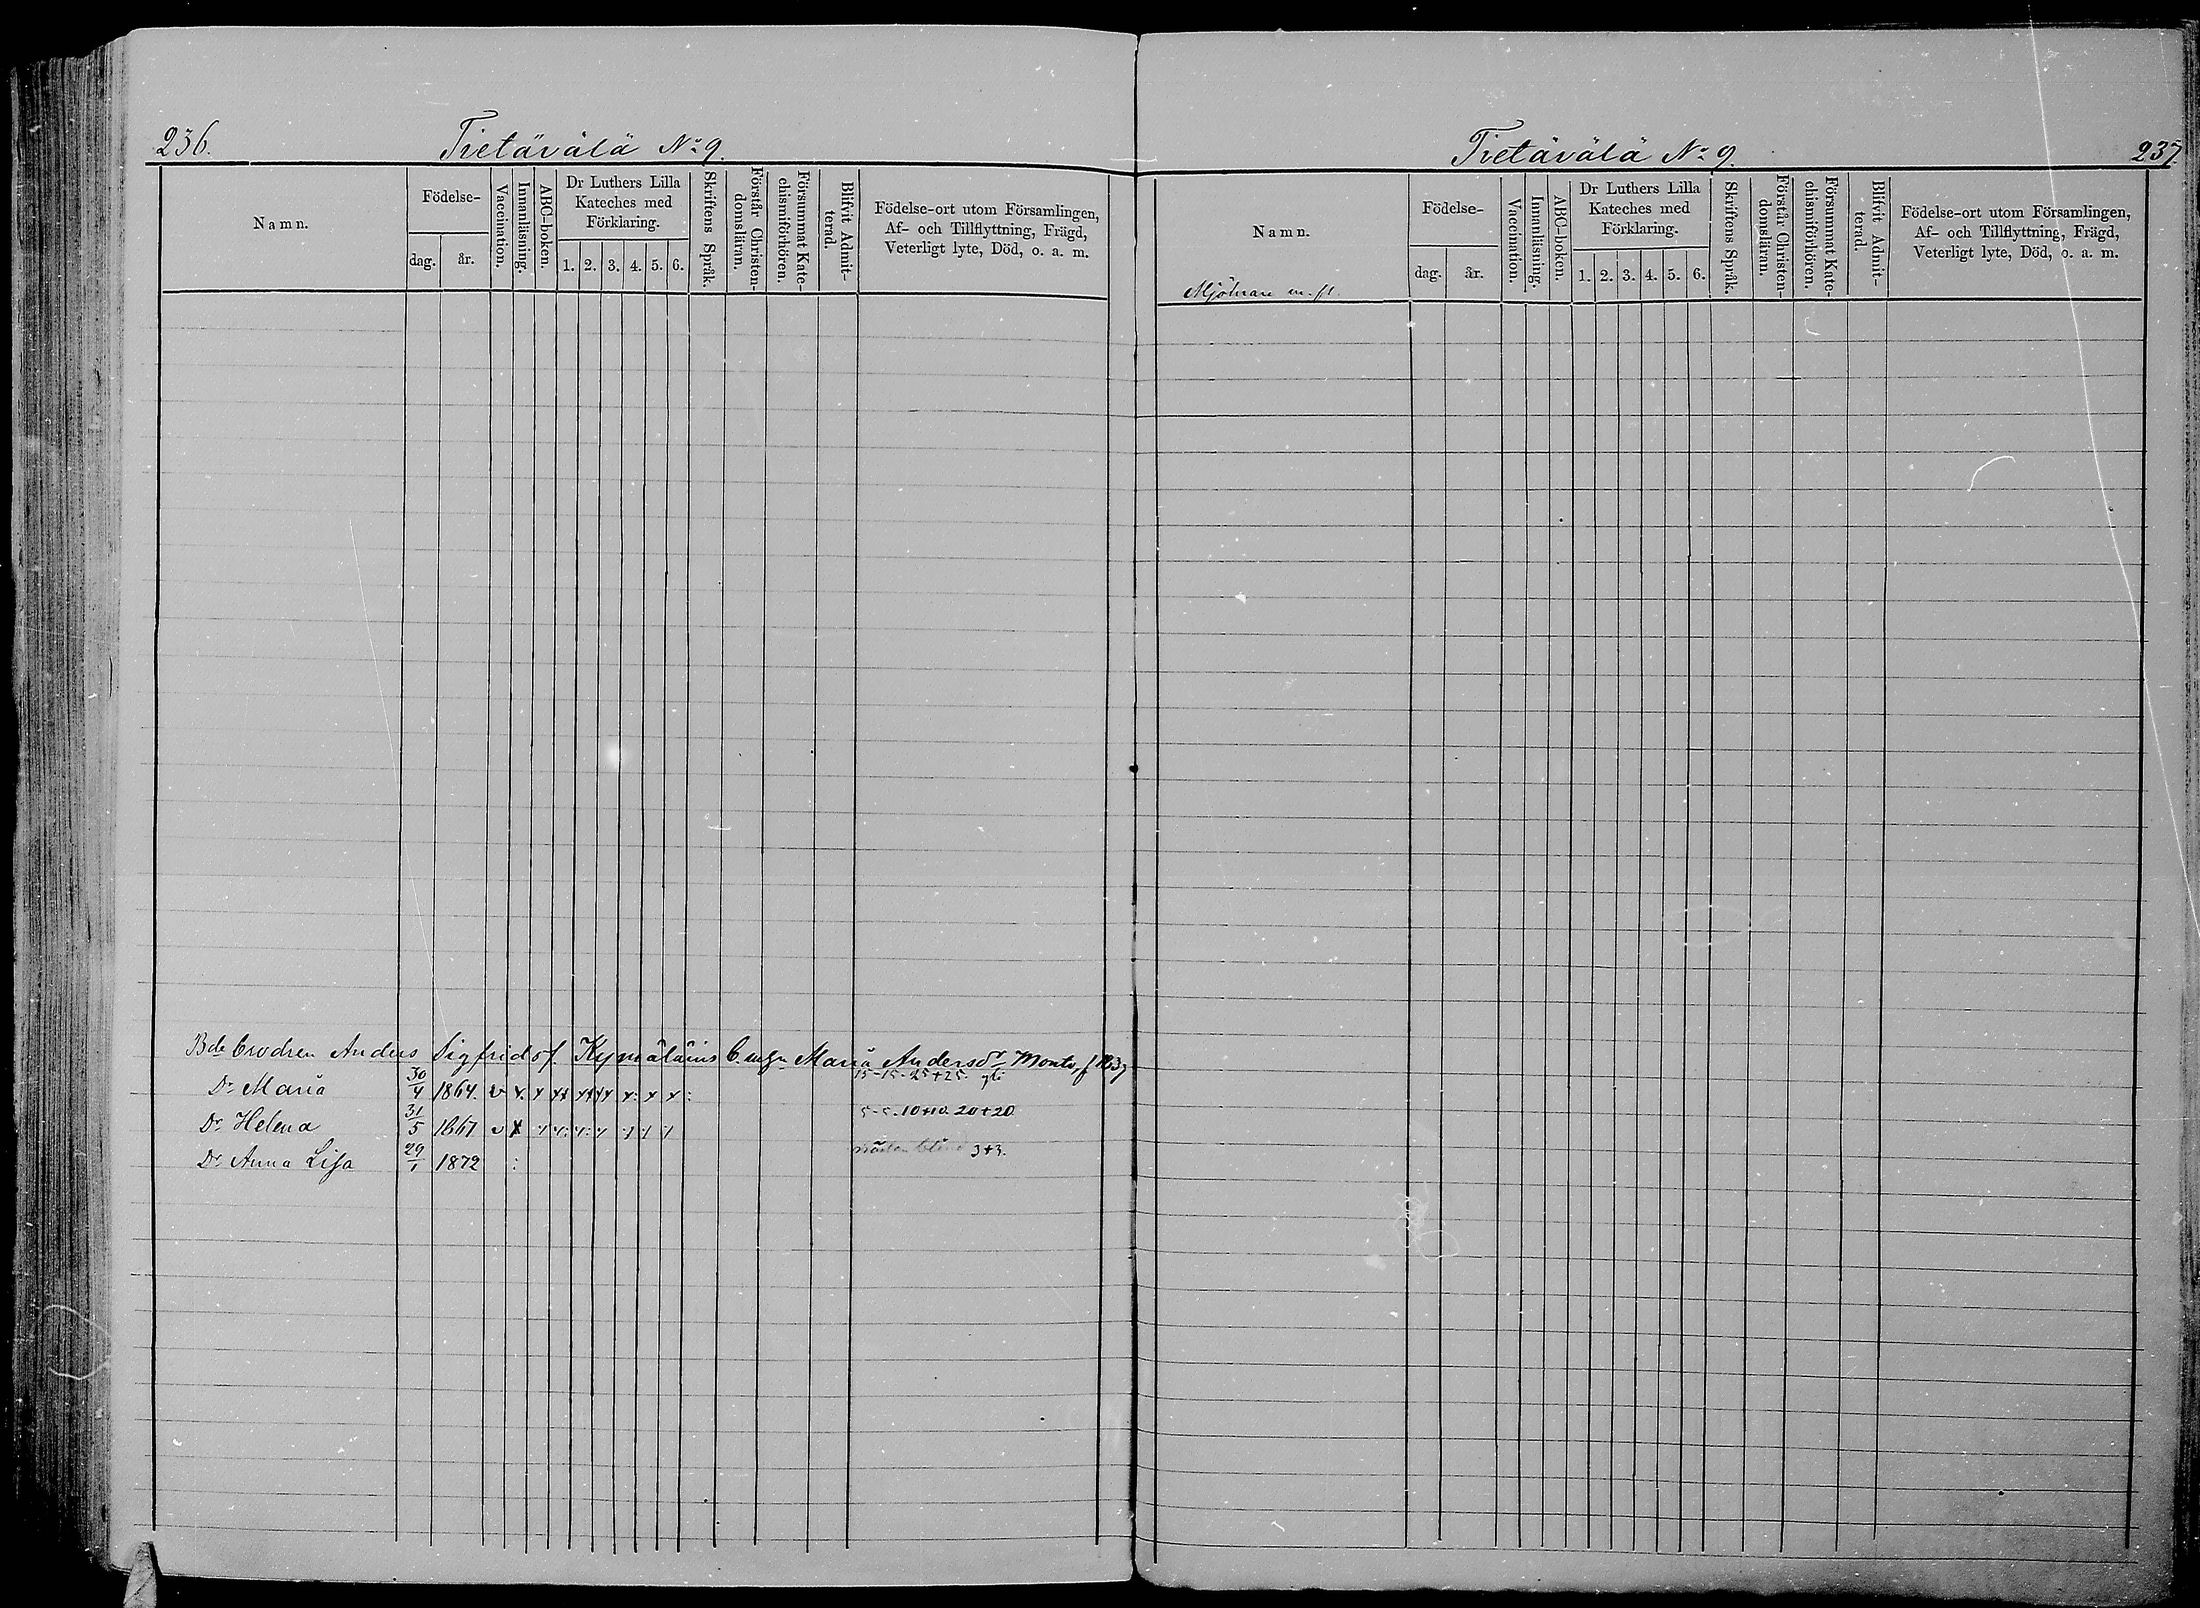 236.
Tietävälä No 9.
Namn.
Födelse-
dag.
år.
Vaccination.
Innanläsning.
ABC-boken.
Dr Luthers Lilla
Kateches med
Förklaring.
1. 2. 3. 4. 5. 6.
Skriftens Språk.
Förstår Christen-
domsläran.
Försummat Kate-
chismiförhören.
Blifvit Admit-
terad.
Födelse-ort utom Församlingen,
Af- och Tillflyttning, Frägd,
Veterligt lyte, Död, o. a. m.
Bde brodren Anders Sigfrids f. Kymäläins Maria Andersdr Monto, f.
15-15-25+25.
Dr Maria 30/4 1864. v x x xx
5-5-10+10. 20+20.
Dr Helena 31/5 1867 v x
Dr Anna Lisa 29/1 1872 : nästan blind 3+3.
Tietävälä No 9.
237.
Namn.
Mjölnare m. fl.
Födelse-
dag.
år.
Vaccination.
Innanläsning.
ABC-bokon.
Dr Luthers Lilla
Kateches med
Förklaring.
1. 2. 3. 4. 5. 6.
Skriftens Språk.
Förstån Christen-
domsläran.
Försummat Kate-
chismiförhören.
Blifvit Admit-
terad.
Födelse-ort utom Församlingen,
Af- och Tillflyttning, Frägd,
Veterligt lyte, Död, o. a. m.